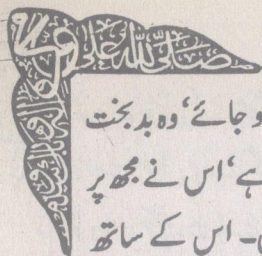 صلی اللہ علی
و جائے‘ وہ بدبخت
ہے‘ اس نے مجھ پر
ں۔ اس کے ساتھ